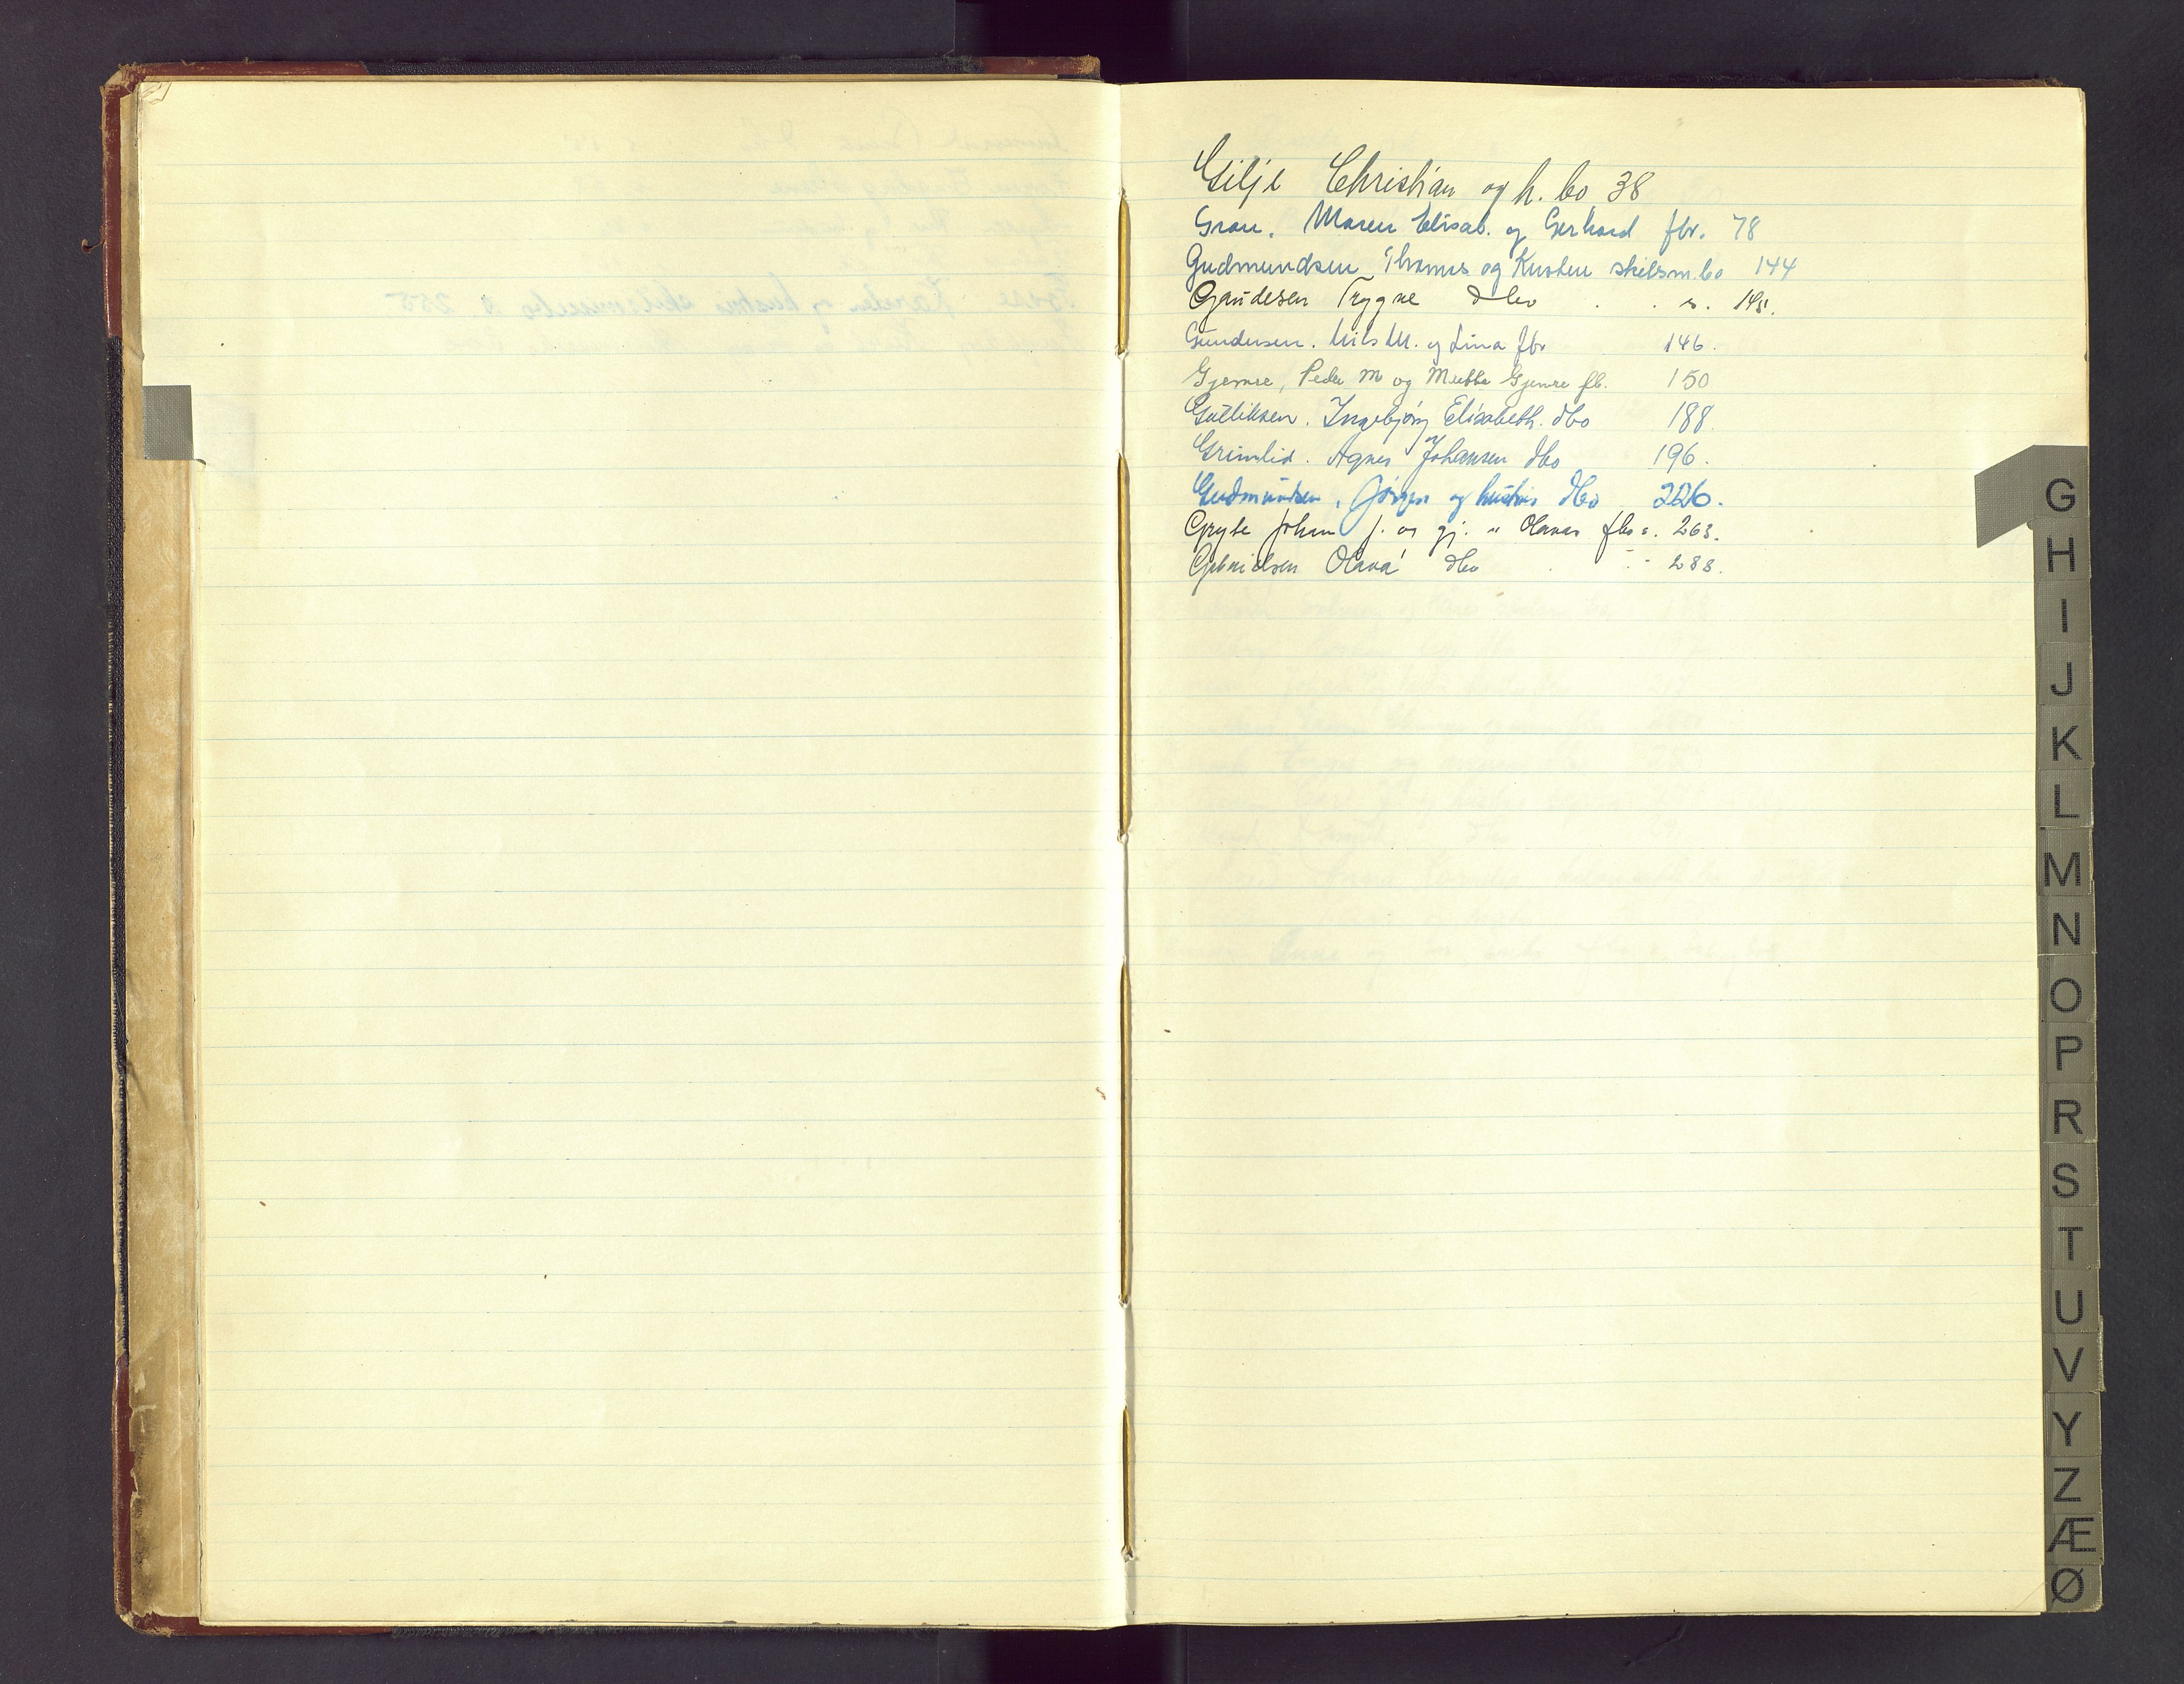 Gilje Christian og h. bo 38
Grau. Maren Elisab. og Gerhard fbr. 78
Gudmundsen, Thomas og Kirsten skilsm.bo 144
Gaudesen Trygve dbo . . s. 145.
Gundersen. Nils M. og Lina fbr 146.
Gjemre, Peder M og Mette Gjemre fb. 150
Gulliksen. Ingebjørg Elisabeth. dbo 188.
Grimlid. Agnes Johansen dbo 196.
Gudmundsen, Jørgen og hustrus dbo 226.
Gryte Johan J. og gj. Olavas fbo s. 263.
Gabrielsen Olava dbo . - 283.
G
H
I
J
K
L
M
N
O
P
R
S
T
U
V
Y
Z
Æ
Ø